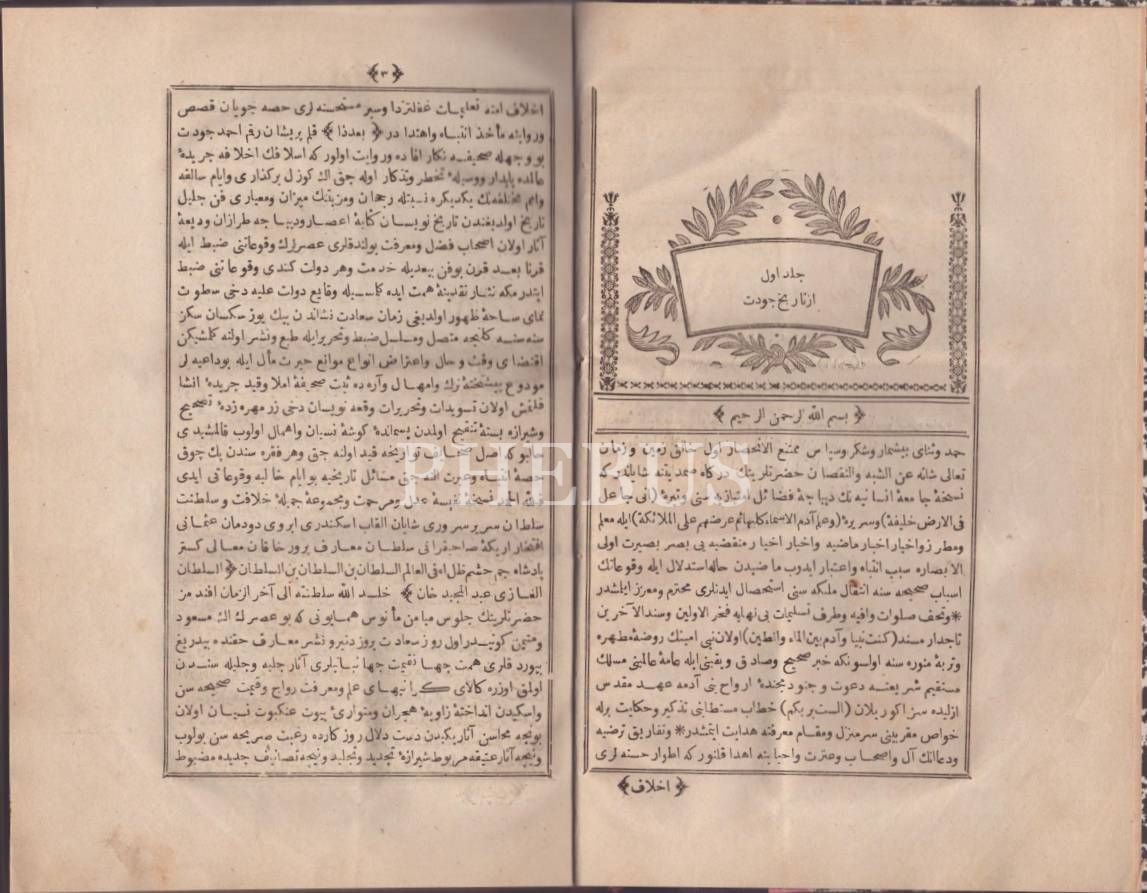 جلد اول
از تاريخ جودت
﴿ بسم الله الرحمن الرحيم ﴾
حمد وثنای بيشمار وشكر وسپاس ممتنع الانحصار اول خالق زمين وزمان
تعالی شانه عن الشبه والنقصان حضرتلرينك درگاه صمديتنه شاياندر كه
نسخۀ جامعۀ انسانيه نك ديباجۀ فضائل امتيازينی (انی جاعل
فی الارض خليفة) وسريرۀ (وعلم آدم الاسماء كلها ثم عرضهم علی الملائكة) ايله معلم
ومطرز واخبار اخبار ماضيه واخبار اخيار منقضيه يی بصر بصيرت اولی
الابصاره سبب انتباه واعتبار ايدوب ماضيدن حاله استدلال ايله وقوعاتك
اسباب صحيحه سنه انتقال ملكه سنی استحصال ايدنلری محترم ومعزز ايلمشدر
* وتحف صلوات وافيه وطرف تسليمات بی نهايه فخر الاولين وسند الآخرين
تاجدار مسند (كنت نبيا وآدم بين الماء والطين) اولان نبی امينك روضۀ مطهره
وتربۀ منوره سنه اولسونكه خبر صحيح وصادق ويقينی ايله عامۀ عالمينی مسلك
مستقيم شريعتنه دعوت وجنود مجندۀ ارواح بنی آدمه عهد مقدس
ازليده سزاكور يلان (الست بربكم) خطاب مستطابنی تذكير وحكايت برله
خواص مقربينی سرمنزل ومقام معرفتنه هدايت ايتمشدر * وتفاريق ترضيه
ودعانك آل واصحاب وعترت واحبابنه اهدا قلنور كه اطوار حسنه لری
﴿ اخلاف ﴾
﴿ ٣ ﴾
اخلاف امته تعليمات غفلتزدا وسير مستحسنه لری حصه جويان قصص
وروايته مأخذ انتباه واهتدادر ﴿ بعدذا ﴾ قلم پريشان رقم احمد جودت
بو وجهله صحيفه نكار افاده وروايت اولور كه اسلافك اخلافه جريدۀ
عالمده پايدار ووسيلۀ تخطر وتذكار اوله جق اك كوزل برگذاری وايام سالفه
وامم مختلفه نك يكديكره نسبتله رجحان ومزيتنك ميزان ومعياری فن جليل
تاريخ اولديغندن تاريخ نويسان كتابۀ اعصار وديباجه طرازان وديعۀ
آثار اولان اصحاب فضل ومعرفت بولندقلری عصرلرك وقوعاتنی ضبط ايله
قرنا بعد قرن بوفن بيعديله خدمت وهر دولت كندی وقوعاتنی ضبط
ايتدرمكه نثار نقدينۀ همت ايده كلمسيله وقايع دولت عليه دخی سطوت
نمای ساحۀ ظهور اولديغی زمان سعادت نشاندن بيك يوز سكسان سكز
سنه سنه كلنجه متصل ومسلسل ضبط وتحرير ايله طبع ونشر اولنه كلمشيكن
اقتضای وقت وحال واعتراض انواع موانع حيرت مآل ايله بوداعيه لر
مودوع پيشتختۀ ترك وامهال وآره ده ثبت صحيفۀ املا وقيد جريدۀ انشا
قلنمش اولان تسويدات وتحريرات وقعه نويسان دخی زر مهره زدۀ تصحيح
وشيرازه بستۀ تنقيح اولمدن پسماندۀ كوشۀ نسيان واهمال اولوب قالمشيدی
حالبوكه اصل صحائف تواريخه قيد اولنه جق وهر فقره سندن پك چوق
حصۀ انتباه وعبرت آلنه جق مسائل تاريخيه بو ايام خاليه وقوعاتی ايدی
لله الحمد نسخۀ نفيسۀ عدل ومرحمت ومجموعۀ جميلۀ خلافت وسلطنت
سلطان سرير سروری شايان القاب اسكندری ابروی دودمان عثمانی
افتخار اريكۀ صاحبقرانی سلطان معارف پرور خاقان معالی كستر
پادشاه جم حشم ظل الله فی العالم السلطان بن السلطان بن السلطان ﴿ السلطان
الغازی عبد المجيد خان ﴾ خلد الله سلطنته الی آخر الزمان افندمز
حضرتلرينك جلوس ميامن مأنوس همايونی كه بو عصرك اك مسعود
ومتيمن كونيدر اول روز سعادت بروزدنبرو نشر معارف حقنده بيدريغ
بيورد قلری همت جهاقيمت جهانبانيلری آثار جليه وجليله سندن
اولمق اوزره كالای گرانبهای علم ومعرفت رواج وقيمت صحيحه سن
واسكيدن انداختۀ زاويۀ هجران ومتوارئ بيوت عنكبوت نسيان اولان
بونجه محاسن آثار يكيدن دست دلال روز كارده رغبت صريحه سن بولوب
ونيجه آثار عتيقه مربوط شيرازۀ تجديد وتجليد ونيجه تصانيف جديده مضبوط
PHEBUS